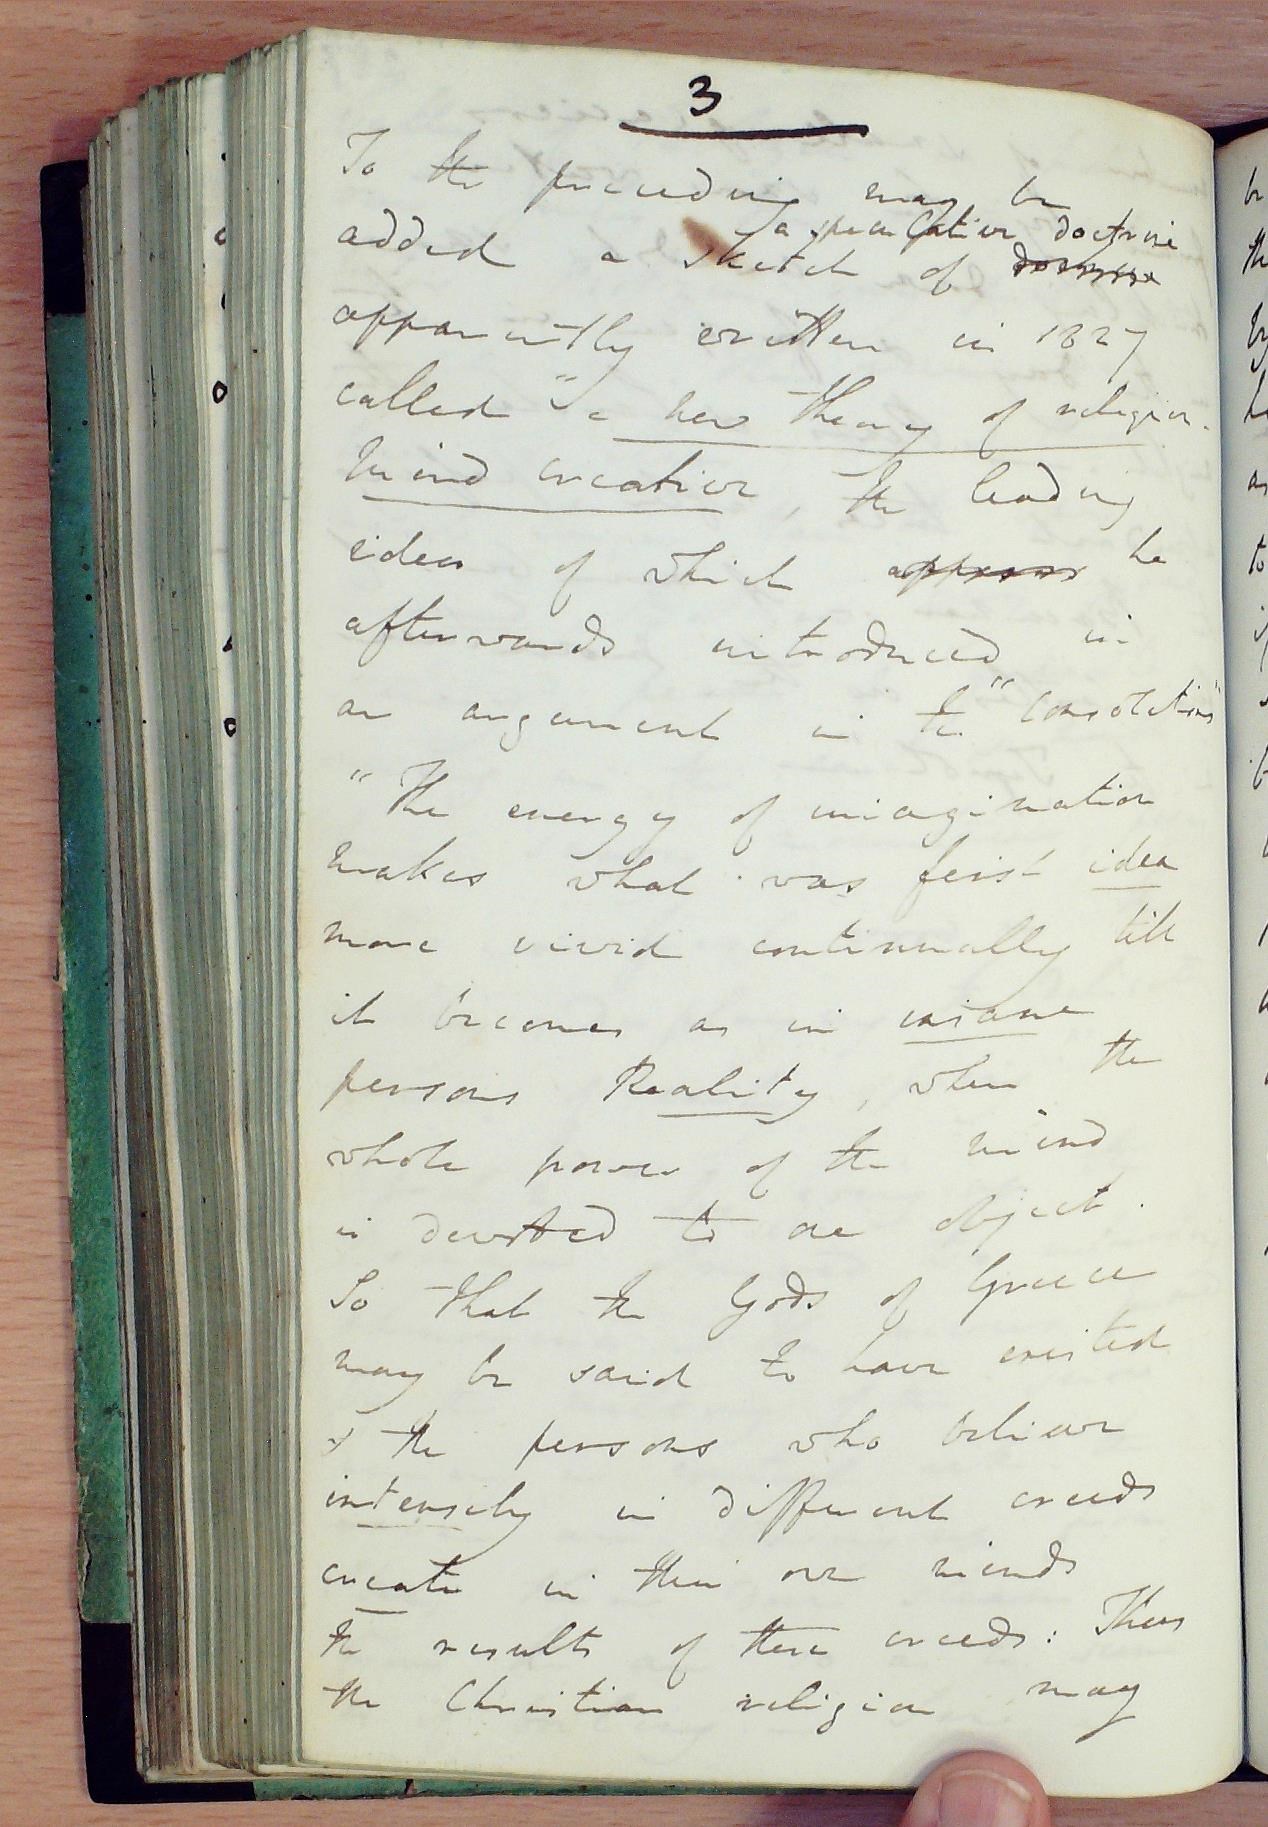 3
To the preceding may be
a speculative doctrine
added a sketch of doctrine
apparently written in 1827
called "a new theory of religion.
Mind creation, the leading
ideas of which appears he
afterwards introduced in
an argument in the "Consolations"
"The energy of imagination
makes what was first idea
more vivid continually till
it becomes as in insane
persons Reality, when the
whole power of the mind
is devoted to one object.
So that the Gods of Greece
may be said to have existed
& the persons who believe
intensely in different creeds
create in their own minds
the results of these creeds: Thus
the Christian religion may